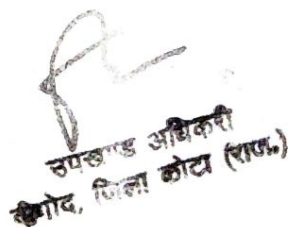 उपखण्ड अधिकारी
सांगोद, जिला कोटा (राज०)